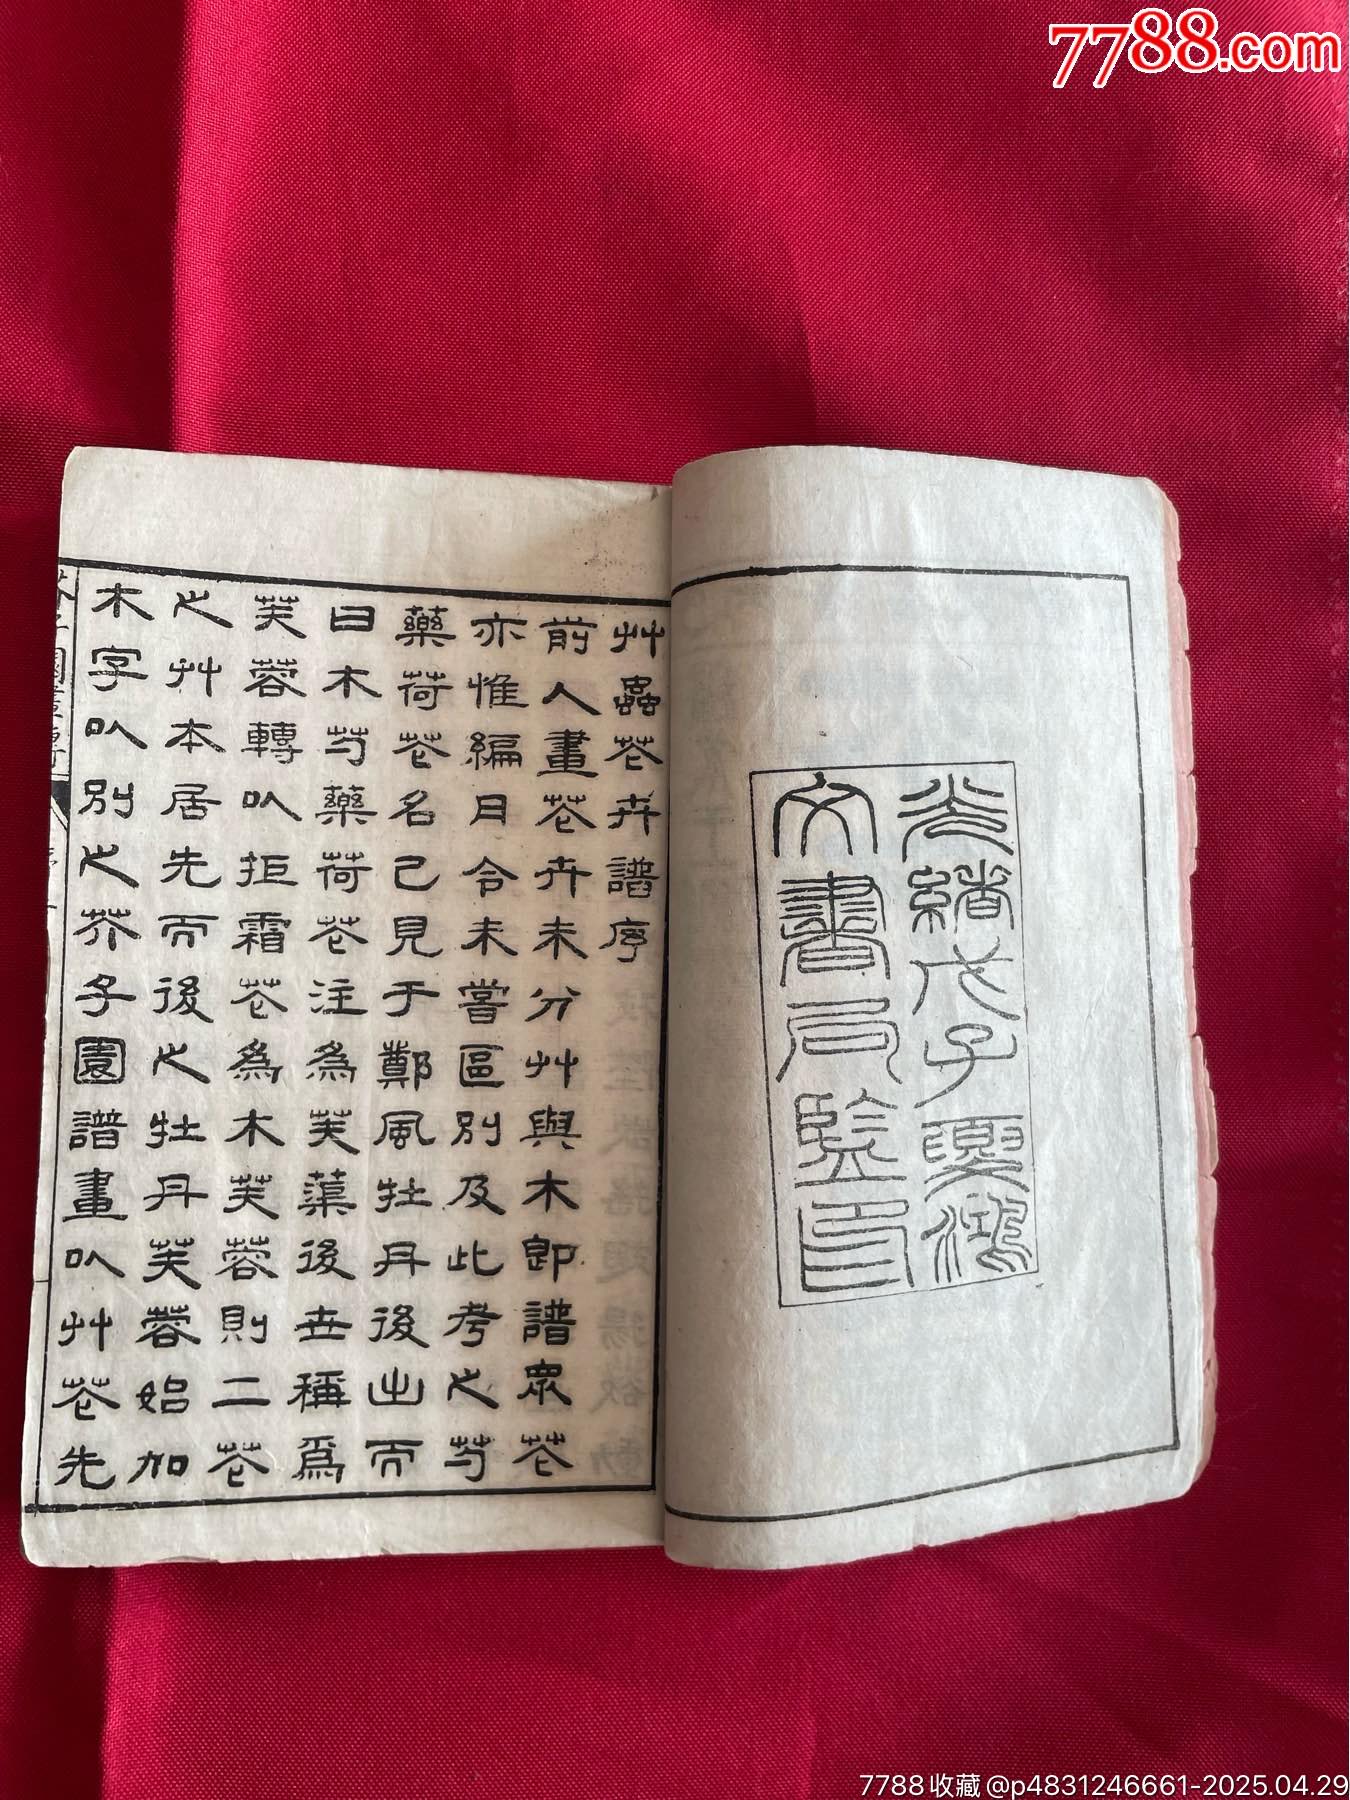 7788.com
光緒戊子鴻
文書局監印
艸蟲花卉譜序
前人畫花卉未分艸與木卽譜眾花
亦惟編月令未嘗區別及此考之芍
藥荷花名已見于鄭風牡丹後出而
曰木芍藥荷花注為芙蕖後世稱為
芙蓉轉以拒霜花為木芙蓉則二花
之艸本居先而後之牡丹芙蓉始加
木字以別之芥子園譜畫以艸花先
芥子園畫傳
7788收藏@p4831246661-2025.04.29